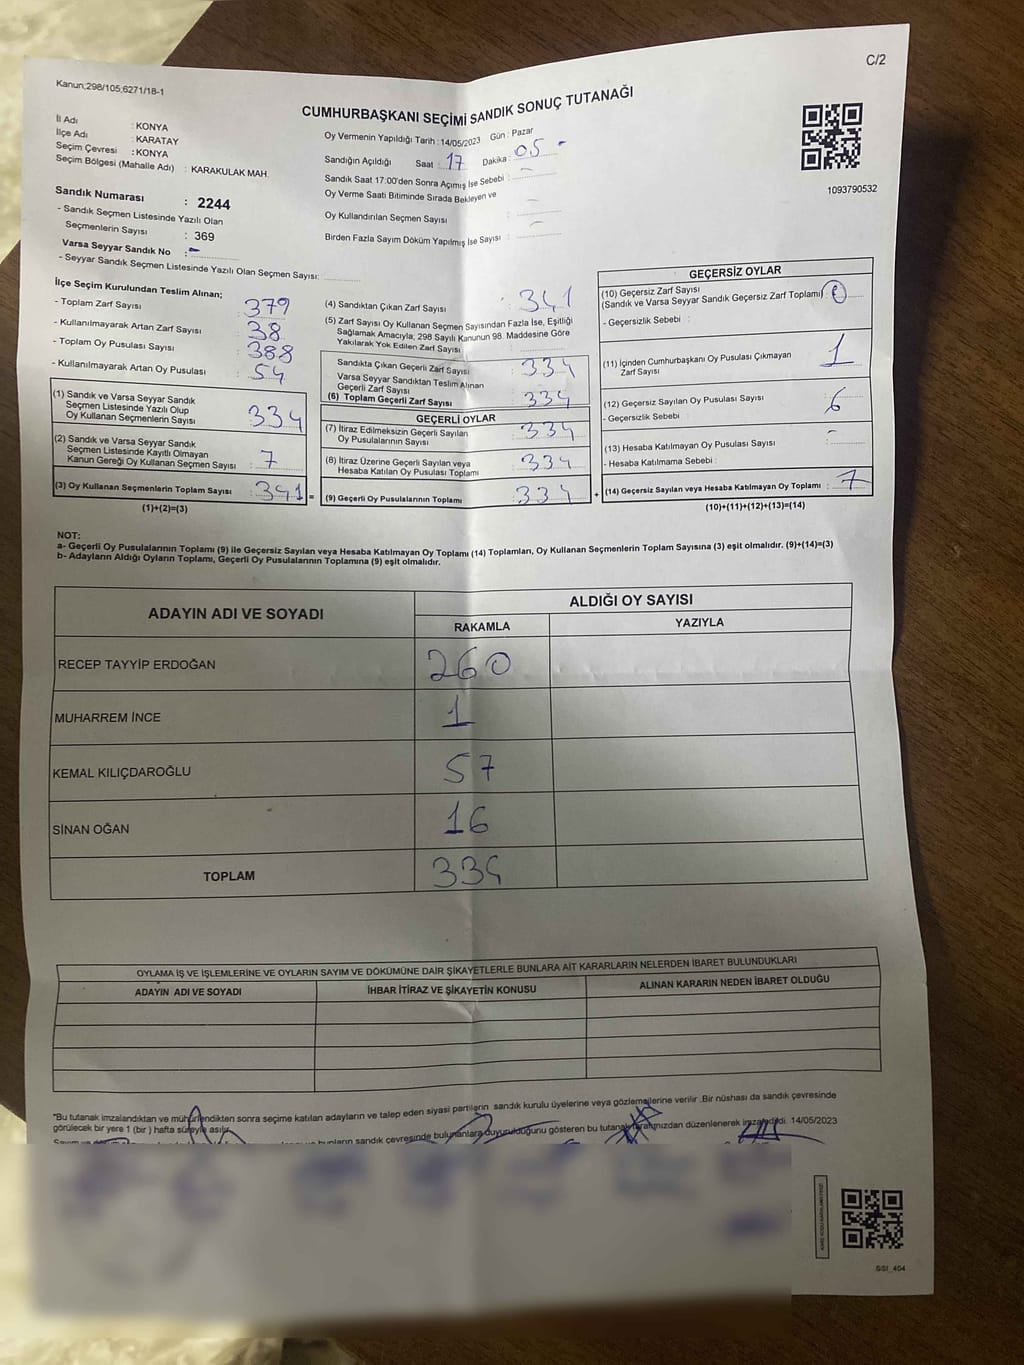 C/2
Kanun;298/105;6271/18-1
CUMHURBAŞKANI SEÇİMİ SANDIK SONUÇ TUTANAĞI
İl Adı : KONYA
İlçe Adı : KARATAY
Seçim Çevresi : KONYA
Seçim Bölgesi (Mahalle Adı) : KARAKULAK MAH.
Sandık Numarası : 2244
- Sandık Seçmen Listesinde Yazılı Olan
Seçmenlerin Sayısı : 369
Varsa Seyyar Sandık No : -
- Seyyar Sandık Seçmen Listesinde Yazılı Olan Seçmen Sayısı:
Oy Vermenin Yapıldığı Tarih : 14/05/2023 Gün : Pazar
Sandığın Açıldığı Saat : 17 Dakika : 05 -
Sandık Saat 17:00'den Sonra Açımış İse Sebebi : -
Oy Verme Saati Bitiminde Sırada Bekleyen ve
Oy Kullandırılan Seçmen Sayısı : -
Birden Fazla Sayım Döküm Yapılmış İse Sayısı : -
1093790532
İlçe Seçim Kurulundan Teslim Alınan;
- Toplam Zarf Sayısı : 379
- Kullanılmayarak Artan Zarf Sayısı : 38
- Toplam Oy Pusulası Sayısı : 388
- Kullanılmayarak Artan Oy Pusulası : 54
(1) Sandık ve Varsa Seyyar Sandık
Seçmen Listesinde Yazılı Olup
Oy Kullanan Seçmenlerin Sayısı : 334
(2) Sandık ve Varsa Seyyar Sandık
Seçmen Listesinde Kayıtlı Olmayan
Kanun Gereği Oy Kullanan Seçmen Sayısı : 7
(3) Oy Kullanan Seçmenlerin Toplam Sayısı : 341 =
(1)+(2)=(3)
(4) Sandıktan Çıkan Zarf Sayısı : 341
(5) Zarf Sayısı Oy Kullanan Seçmen Sayısından Fazla İse, Eşitliği
Sağlamak Amacıyla; 298 Sayılı Kanunun 98. Maddesine Göre
Yakılarak Yok Edilen Zarf Sayısı :
Sandıkta Çıkan Geçerli Zarf Sayısı : 334
Varsa Seyyar Sandıktan Teslim Alınan
Geçerli Zarf Sayısı
(6) Toplam Geçerli Zarf Sayısı : 334
GEÇERLİ OYLAR
(7) İtiraz Edilmeksizin Geçerli Sayılan
Oy Pusulalarının Sayısı : 334
(8) İtiraz Üzerine Geçerli Sayılan veya
Hesaba Katılan Oy Pusulası Toplamı : 334
(9) Geçerli Oy Pusulalarının Toplamı : 334 +
GEÇERSİZ OYLAR
(10) Geçersiz Zarf Sayısı
(Sandık ve Varsa Seyyar Sandık Geçersiz Zarf Toplamı) :
- Geçersizlik Sebebi :
(11) İçinden Cumhurbaşkanı Oy Pusulası Çıkmayan
Zarf Sayısı : 1
(12) Geçersiz Sayılan Oy Pusulası Sayısı : 6
- Geçersizlik Sebebi :
(13) Hesaba Katılmayan Oy Pusulası Sayısı : -
- Hesaba Katılmama Sebebi :
(14) Geçersiz Sayılan veya Hesaba Katılmayan Oy Toplamı : 7
(10)+(11)+(12)+(13)=(14)
NOT:
a- Geçerli Oy Pusulalarının Toplamı (9) ile Geçersiz Sayılan veya Hesaba Katılmayan Oy Toplamı (14) Toplamları, Oy Kullanan Seçmenlerin Toplam Sayısına (3) eşit olmalıdır. (9)+(14)=(3)
b- Adayların Aldığı Oyların Toplamı, Geçerli Oy Pusulalarının Toplamına (9) eşit olmalıdır.
ADAYIN ADI VE SOYADI ALDIĞI OY SAYISI
RAKAMLA YAZIYLA
RECEP TAYYİP ERDOĞAN 260
MUHARREM İNCE 1
KEMAL KILIÇDAROĞLU 57
SİNAN OĞAN 16
TOPLAM 334
OYLAMA İŞ VE İŞLEMLERİNE VE OYLARIN SAYIM VE DÖKÜMÜNE DAİR ŞİKAYETLERLE BUNLARA AİT KARARLARIN NELERDEN İBARET BULUNDUKLARI
ADAYIN ADI VE SOYADI İHBAR İTİRAZ VE ŞİKAYETİN KONUSU ALINAN KARARIN NEDEN İBARET OLDUĞU
*Bu tutanak imzalandıktan ve mühürlendikten sonra seçime katılan adayların ve talep eden siyasi partilerin sandık kurulu üyelerine veya gözlemcilerine verilir .Bir nüshası da sandık çevresinde
görülecek bir yere 1 (bir ) hafta süreyle asılır.
bunların sandık çevresinde bulunanlara duyurulduğunu gösteren bu tutanak tarafımızdan düzenlenerek imzalandı. 14/05/2023
SSI_404